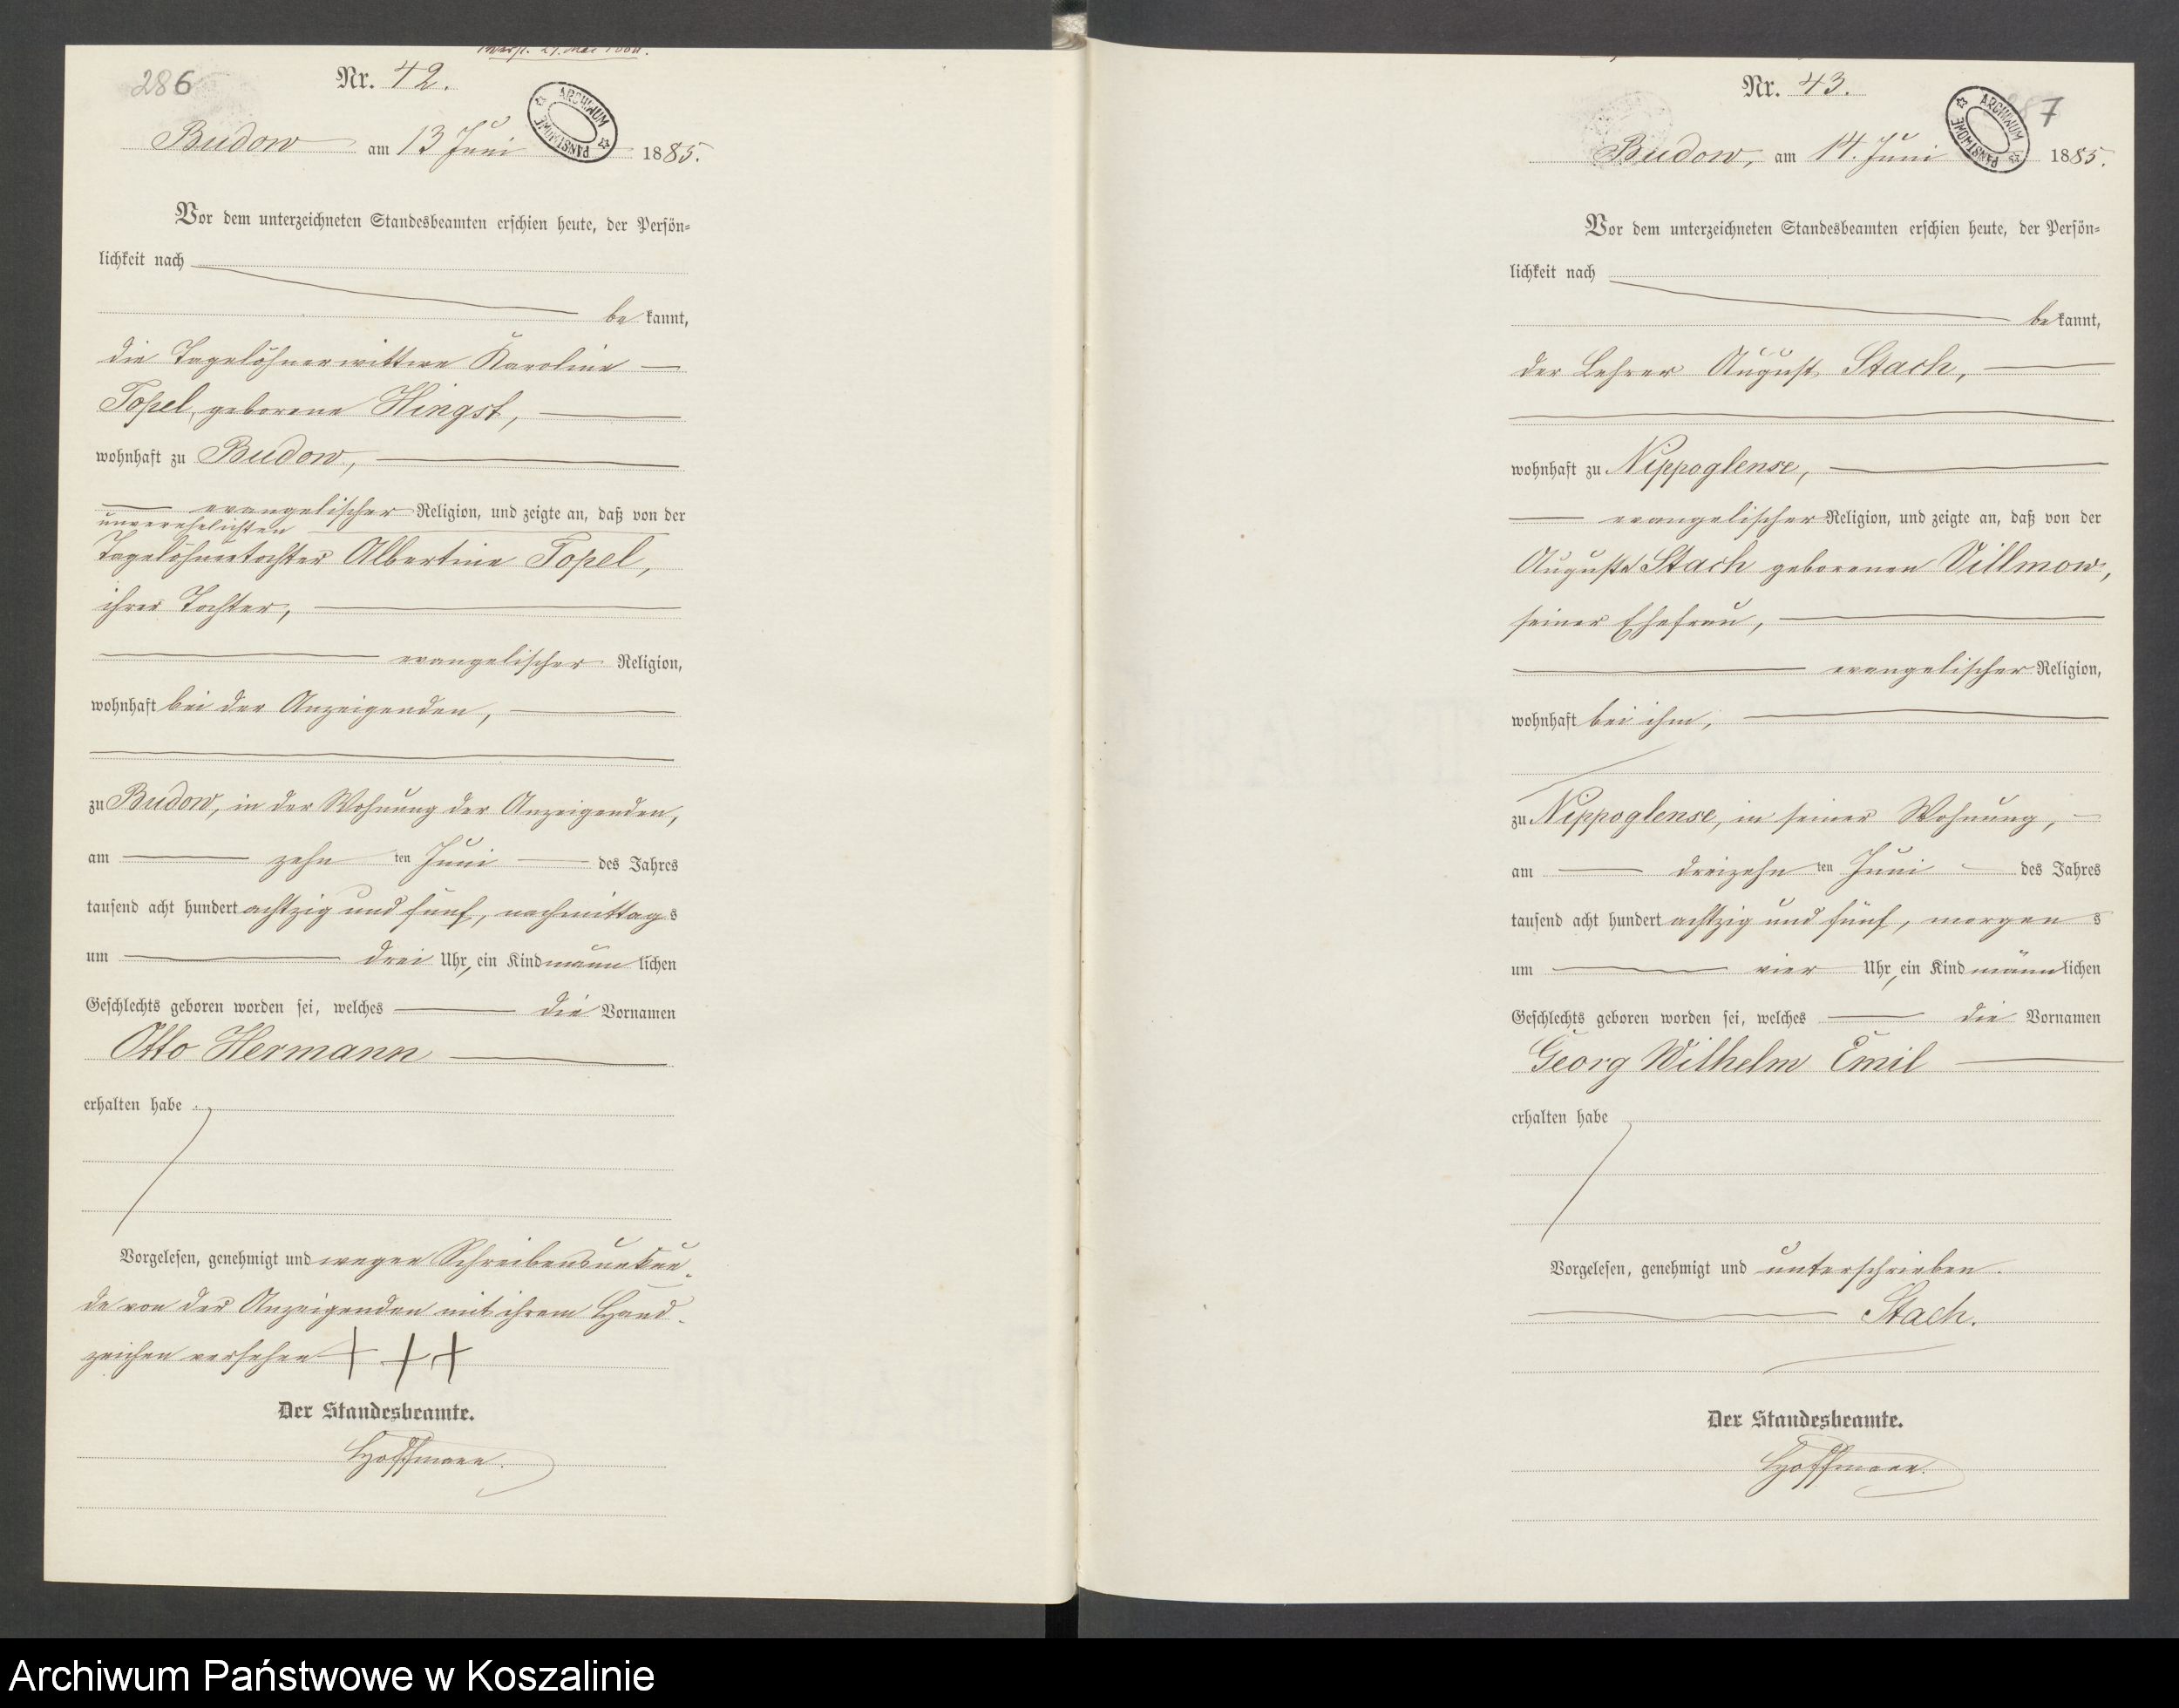 286
Nr. 42.
Budow am 13 Juni 1885.
ARCHIWUM PAŃSTWOWE
Vor dem unterzeichneten Standesbeamten erschien heute, der Persön-
lichkeit nach
be kannt,
die Tagelöhnerwittwe Karoline
Topel, geborene Hingst,
wohnhaft zu Budow,
evangelischer Religion, und zeigte an, daß von der
unverehelichten
Tagelöhnertochter Albertine Topel,
ihrer Tochter,
evangelischer Religion,
wohnhaft bei der Anzeigenden,
zu Budow, in der Wohnung der Anzeigenden,
am zehn ten Juni des Jahres
tausend acht hundert achtzig und fünf, nachmittag s
um drei Uhr, ein Kind männ lichen
Geschlechts geboren worden sei, welches die Vornamen
Otto Hermann
erhalten habe
Vorgelesen, genehmigt und wegen Schreibensunkun-
de von der Anzeigenden mit ihrem Hand-
zeichen versehen + + +
Der Standesbeamte.
Hoffmann.
Nr. 43.
7
Budow, am 14. Juni 1885.
ARCHIWUM PAŃSTWOWE
Vor dem unterzeichneten Standesbeamten erschien heute, der Persön-
lichkeit nach
be kannt,
der Lehrer August Stach,
wohnhaft zu Nippoglense,
evangelischer Religion, und zeigte an, daß von der
Auguste Stach geborenen Villmow,
seiner Ehefrau,
evangelischer Religion,
wohnhaft bei ihm,
zu Nippoglense, in seiner Wohnung,
am dreizehn ten Juni des Jahres
tausend acht hundert achtzig und fünf, morgen s
um vier Uhr, ein Kind männ lichen
Geschlechts geboren worden sei, welches die Vornamen
Georg Wilhelm Emil
erhalten habe
Vorgelesen, genehmigt und unterschrieben.
Stach.
Der Standesbeamte.
Hoffmann.
Archiwum Państwowe w Koszalinie